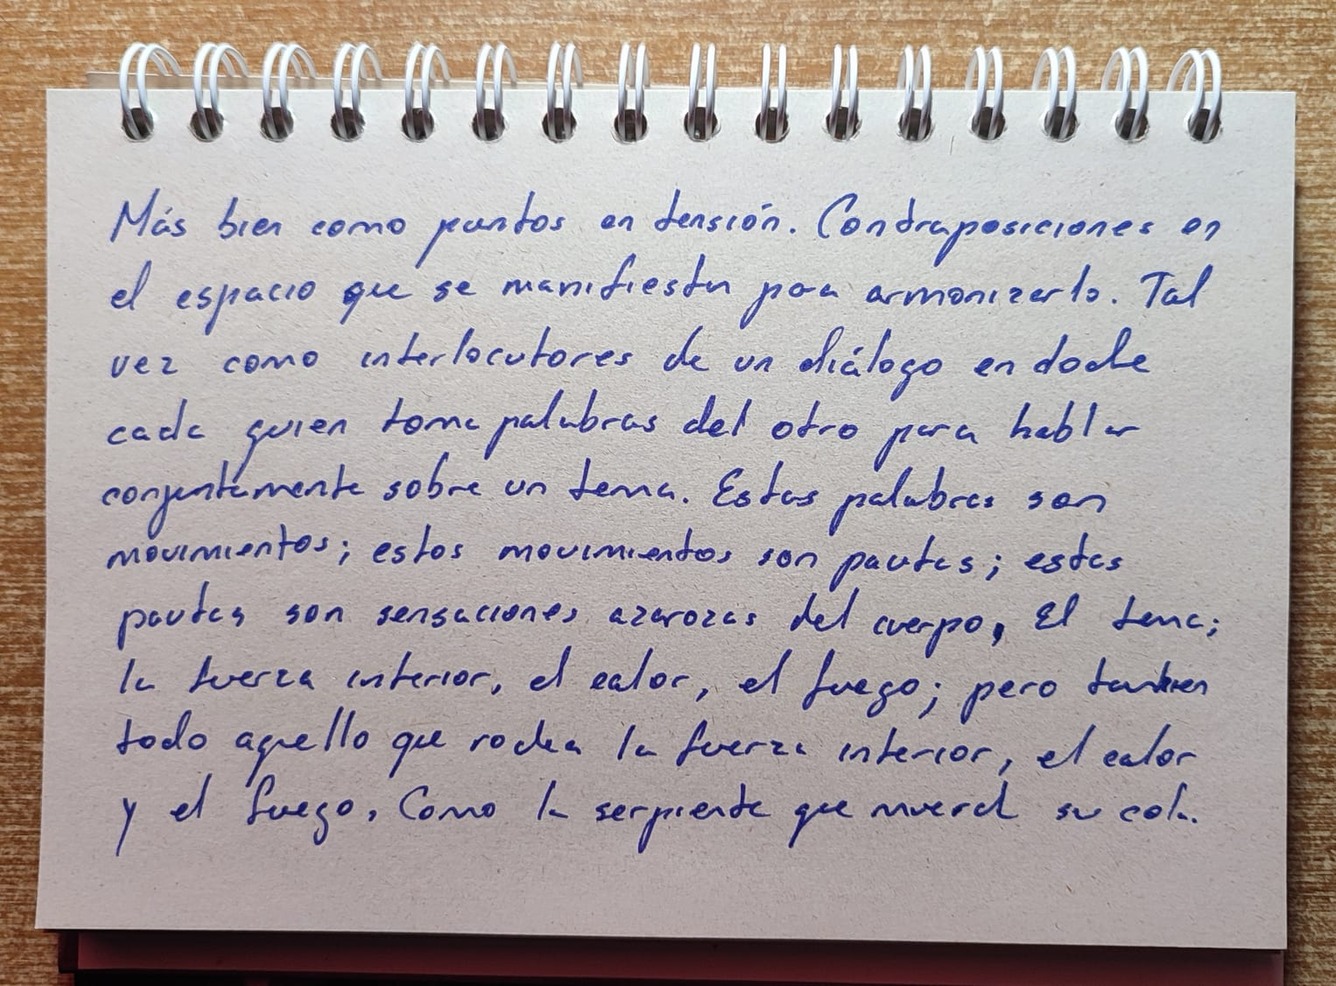 Más bien como puntos en tensión. Contraposiciones en
el espacio que se manifiestan para armonizarlo. Tal
vez como interlocutores de un diálogo en donde
cada quien toma palabras del otro para hablar
conjuntamente sobre un tema. Estas palabras son
movimientos; estos movimientos son pautas; estas
pautas son sensaciones azarozas del cuerpo, El tema;
la fuerza interior, el calor, el fuego; pero tambien
todo aquello que rodea la fuerza interior, el calor
y el fuego. Como la serpiente que muerde su cola.